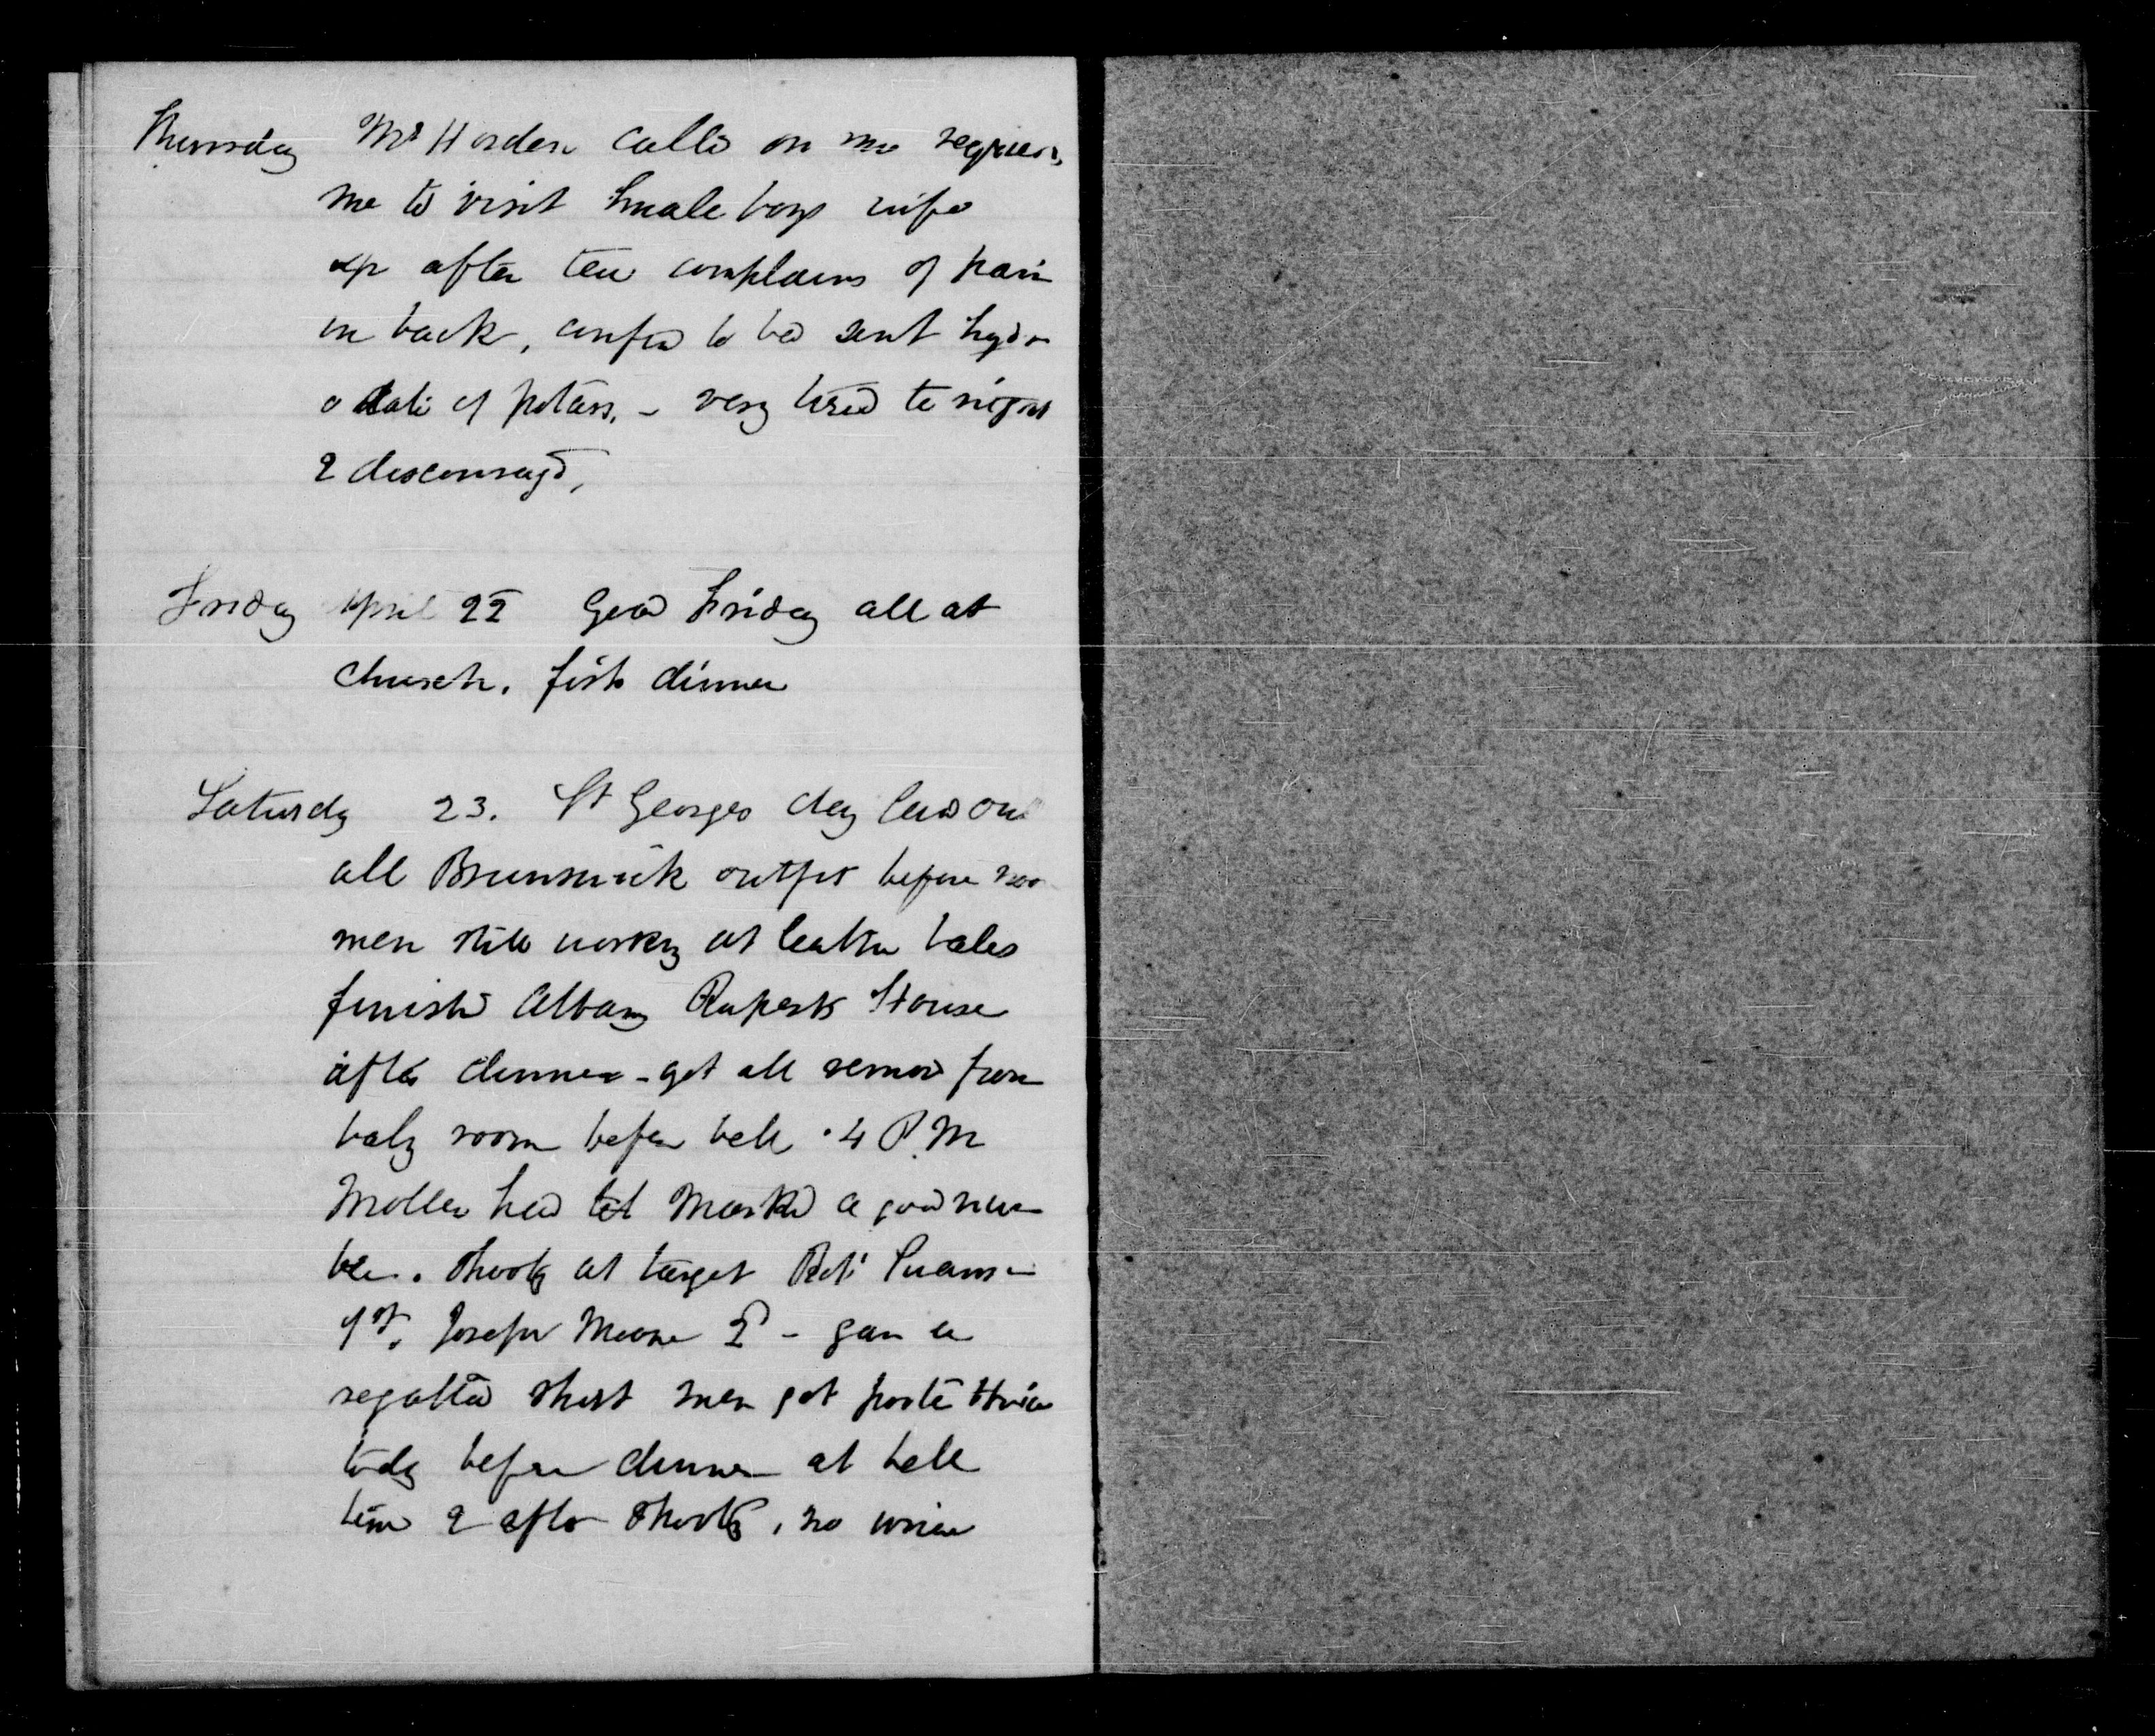 Thursday Mr Horden calls on me request
me to visit Smallboys wife
up after tea complains of pain
in back, confin'd to bed sent hydr
odate of potass, - very tired to night
& discourag'd,
Friday April 22 Good Friday all at
church. fish dinner
Saturdy 23. St Georges day laid out
all Brunswick outfit before noo
men still workg at leather bales
finish'd Albany Ruperts House
after dinner - got all remov'd from
balg room before bell . 4 P.M
Moller had mark'd a good num
ber. Shootg at target Robt Swanson
1st, Joseph Moore 2d - gave a
regatta shirt men got porter twice
today before dinner at bell
time & after shootg, no wine